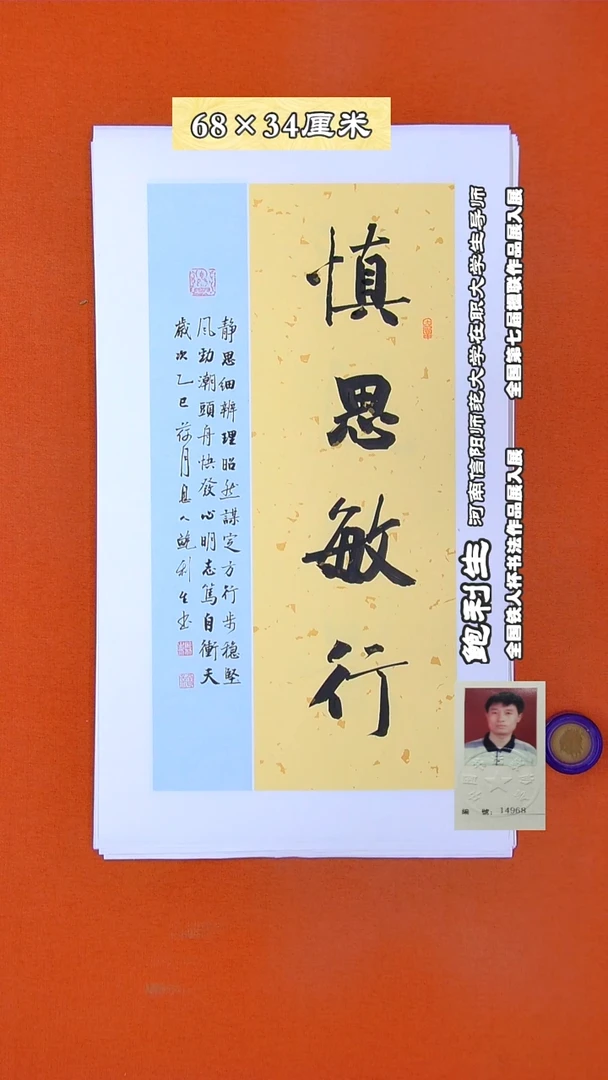 68×34厘米
慎思敏行
静思细辨理昭然謀定方行步穩堅
风劲潮頭舟快發心明志篤自衝天
歲次乙巳荷月息人鲍利生书
鲍利生 河南信阳师范大学在职大学生导师
全国铁人杯书法作品展入展 全国第七届楹联作品展入展
編 號:14968